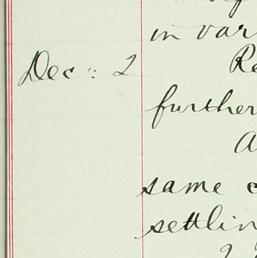 in var
Dec: 2 Re
further
A
same c
settlin